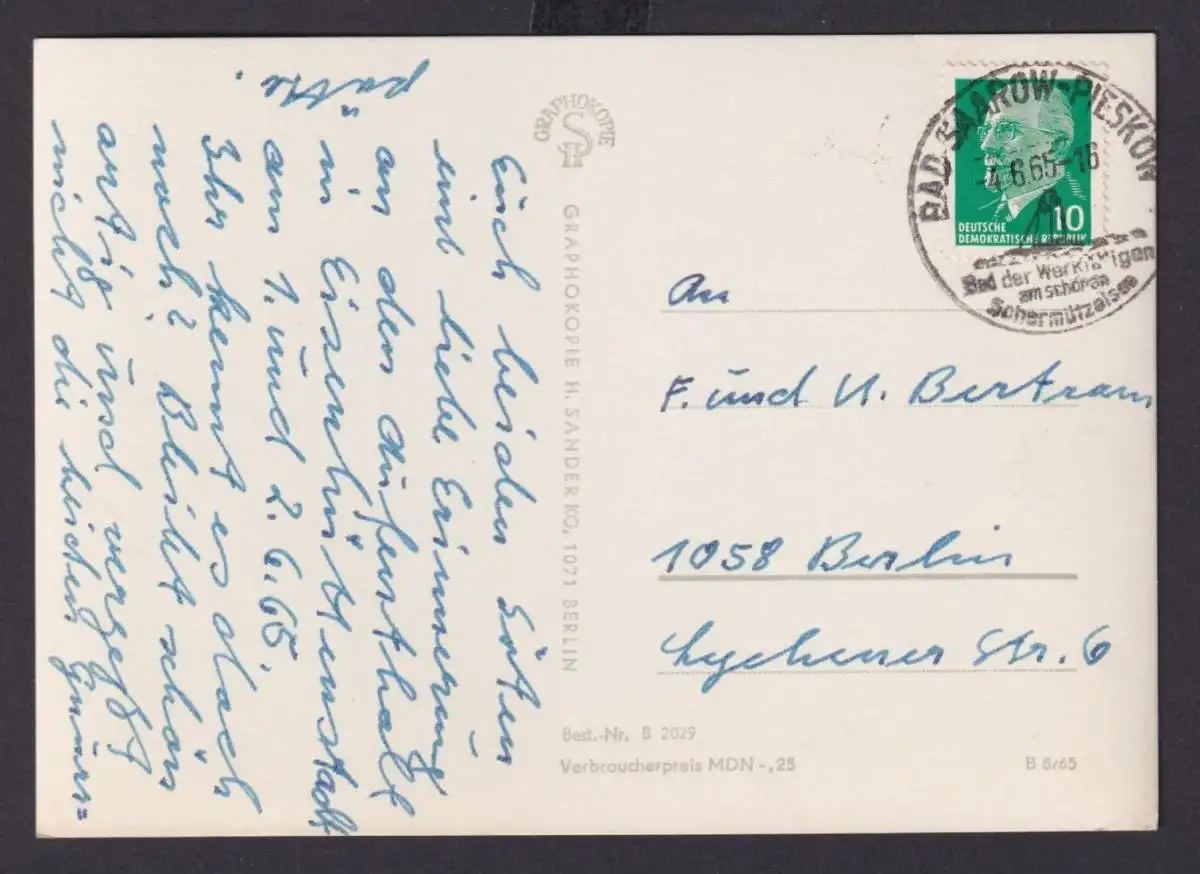 Euch beiden Guten
eine liebe Erinnerung
an den Aufenthalt
in Eisenhüttenstadt
am 1. und 2. 6. 65.
Ihr kennt es doch
noch? Bleibt schön
artig und vergeßt
nicht die beiden
GRAPHOKOPIE
H S
GRAPHOKOPIE H. SANDER KG, 1071 BERLIN
BAD SAAROW-PIESKOW
-4.6.65-16
Bad der Werktätigen
am schönen
Scharmützelsee
10
DEUTSCHE
DEMOKRATISCHE REPUBLIK
An
F. und U. Bertram
1058 Berlin
Lychener Str. 6
Best.-Nr. B 2029
Verbraucherpreis MDN -,25
B 8/65